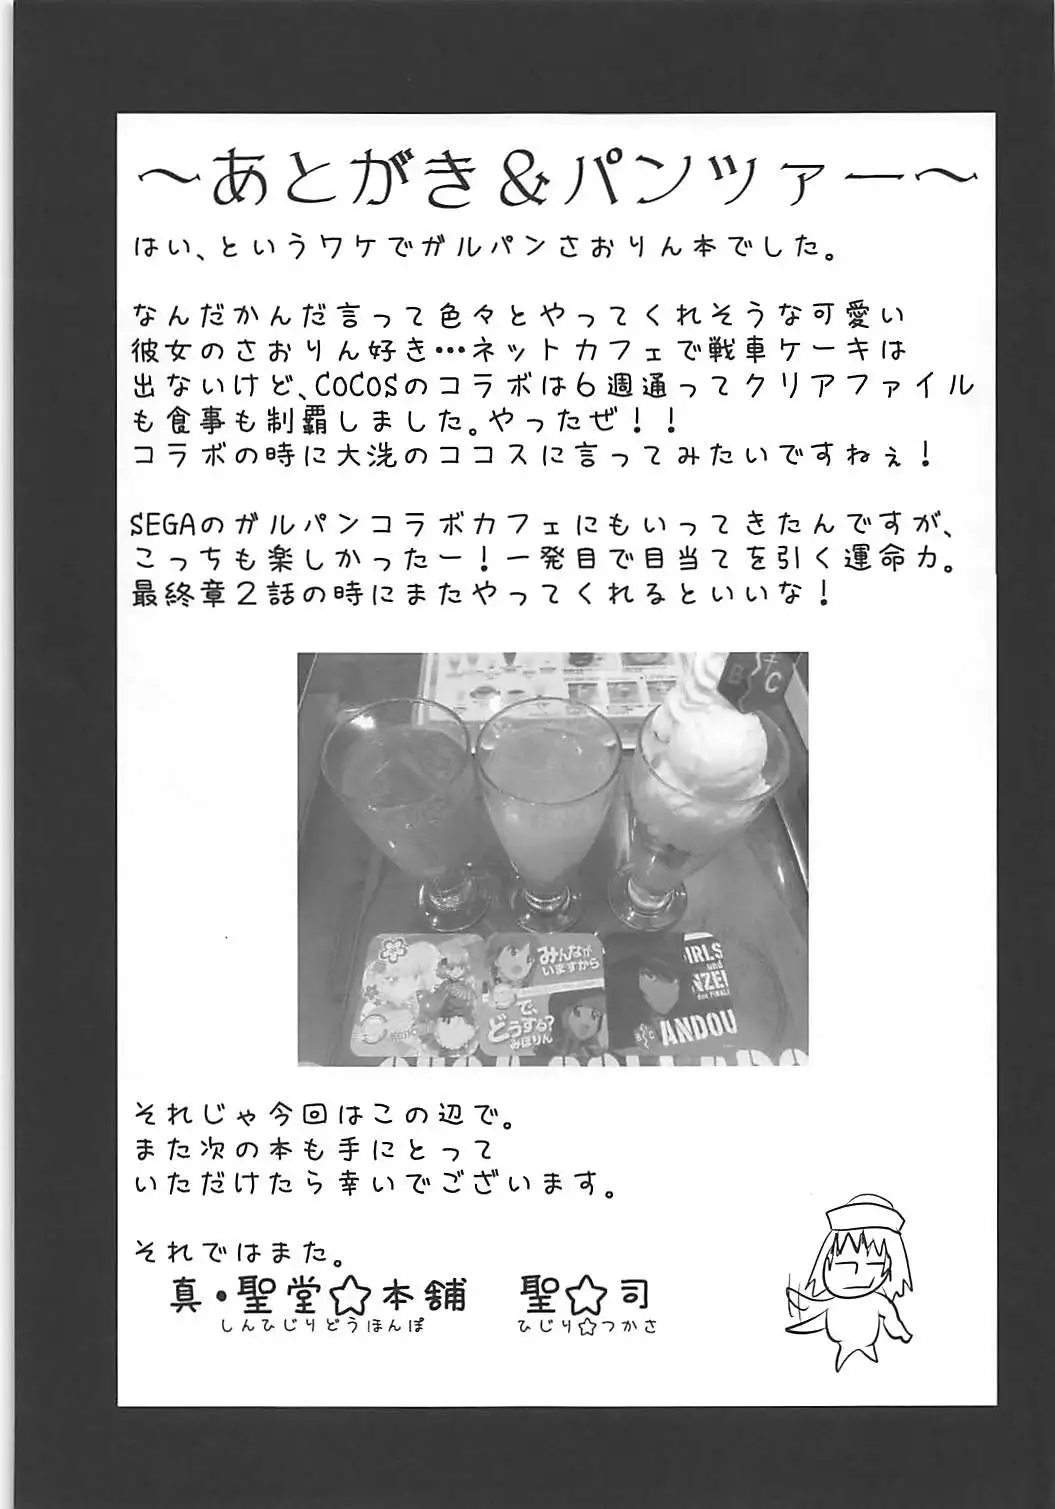 ～あとがき＆パンツァー～
はい、というワケでガルパンさおりん本でした。
なんだかんだ言って色々とやってくれそうな可愛い
彼女のさおりん好き…ネットカフェで戦車ケーキは
出ないけど、COCOSのコラボは６週通ってクリアファイル
も食事も制覇しました。やったぜ！！
コラボの時に大洗のココスに言ってみたいですねぇ！
SEGAのガルパンコラボカフェにもいってきたんですが、
こっちも楽しかったー！一発目で目当てを引く運命力。
最終章２話の時にまたやってくれるといいな！
B C
みんなが
いますから
で、
どうする?
みほりん
GIRLS
und
PANZER
das FINALE
B C
ANDOU
それじゃ今回はこの辺で。
また次の本も手にとって
いただけたら幸いでございます。
それではまた。
真・聖堂☆本舗　聖☆司
しんひじりどうほんぽ　ひじり☆つかさ